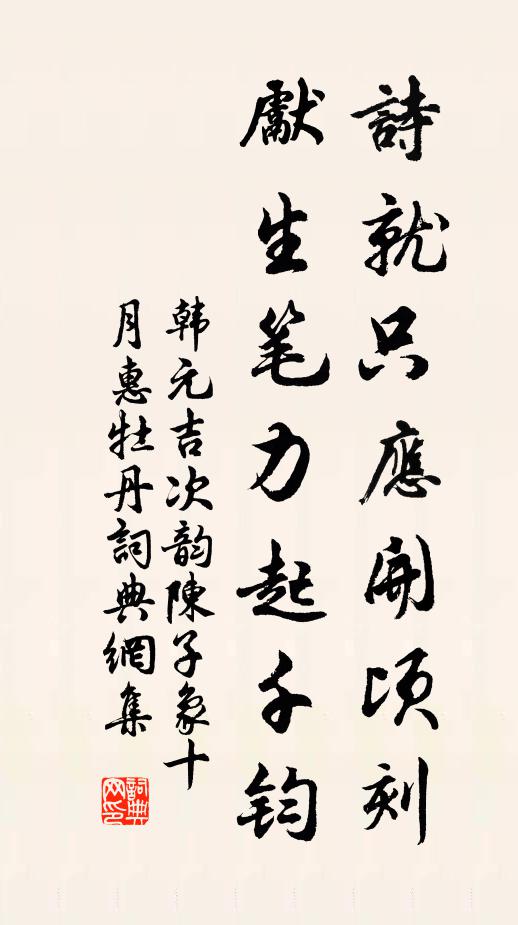 詩就只應開頃刻
獻生笔力起千鈞
韩元吉次韵陳子象十
月惠牡丹詞典網集
詞典
网印